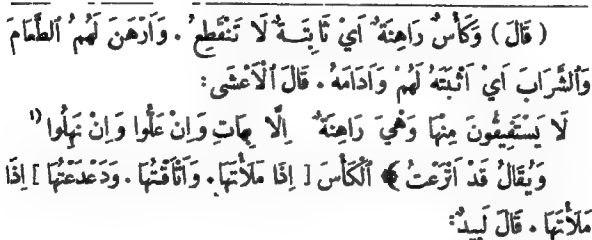 ( قَالَ ) وَكَأْسٌ رَاهِنَةٌ أَيْ ثَابِتَـةٌ لَا تَنْقَطِعُ . وَأَرْهَنَ لَهُمُ ٱلطَّعَامَ
وَٱلشَّرَابَ أَيْ أَثْبَتَهُ لَهُمْ وَأَدَامَهُ . قَالَ ٱلْأَعْشَى :
لَا يَسْتَفِيقُونَ مِنْهَا وَهْيَ رَاهِنَةٌ إِلَّا بِهَاتِ وَإِنْ عَلُّوا وَإِنْ نَهِلُوا (١
وَيُقَالُ قَدْ أَتْرَعْتُ ﴾ ٱلْكَأْسَ [ إِذَا مَلَأْتَهَا . وَأَتْأَقْتُهَا . وَدَعْدَعْتُهَا ] إِذَا
مَلَأْتَهَا . قَالَ لَبِيدٌ :